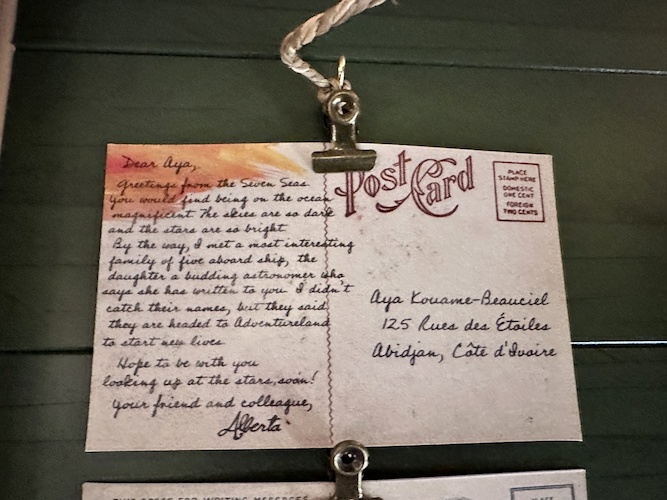 Dear Aya,
Greetings from the Seven Seas.
You would find being on the ocean
magnificent. The skies are so dark
and the stars are so bright
By the way, I met a most interesting
family of five aboard ship, the
daughter a budding astronomer who
says she has written to you. I didn't
catch their names, but they said
they are headed to Adventureland
to start new lives
Hope to be with you
looking up at the stars, soon!
Your friend and colleague,
Alberta
Post Card
PLACE
STAMP HERE
DOMESTIC
ONE CENT
FOREIGN
TWO CENTS
Aya Kouame-Beauciel
125 Rues des Étoiles
Abidjan, Côte d'Ivoire
THIS SPACE FOR WRITING MESSAGES